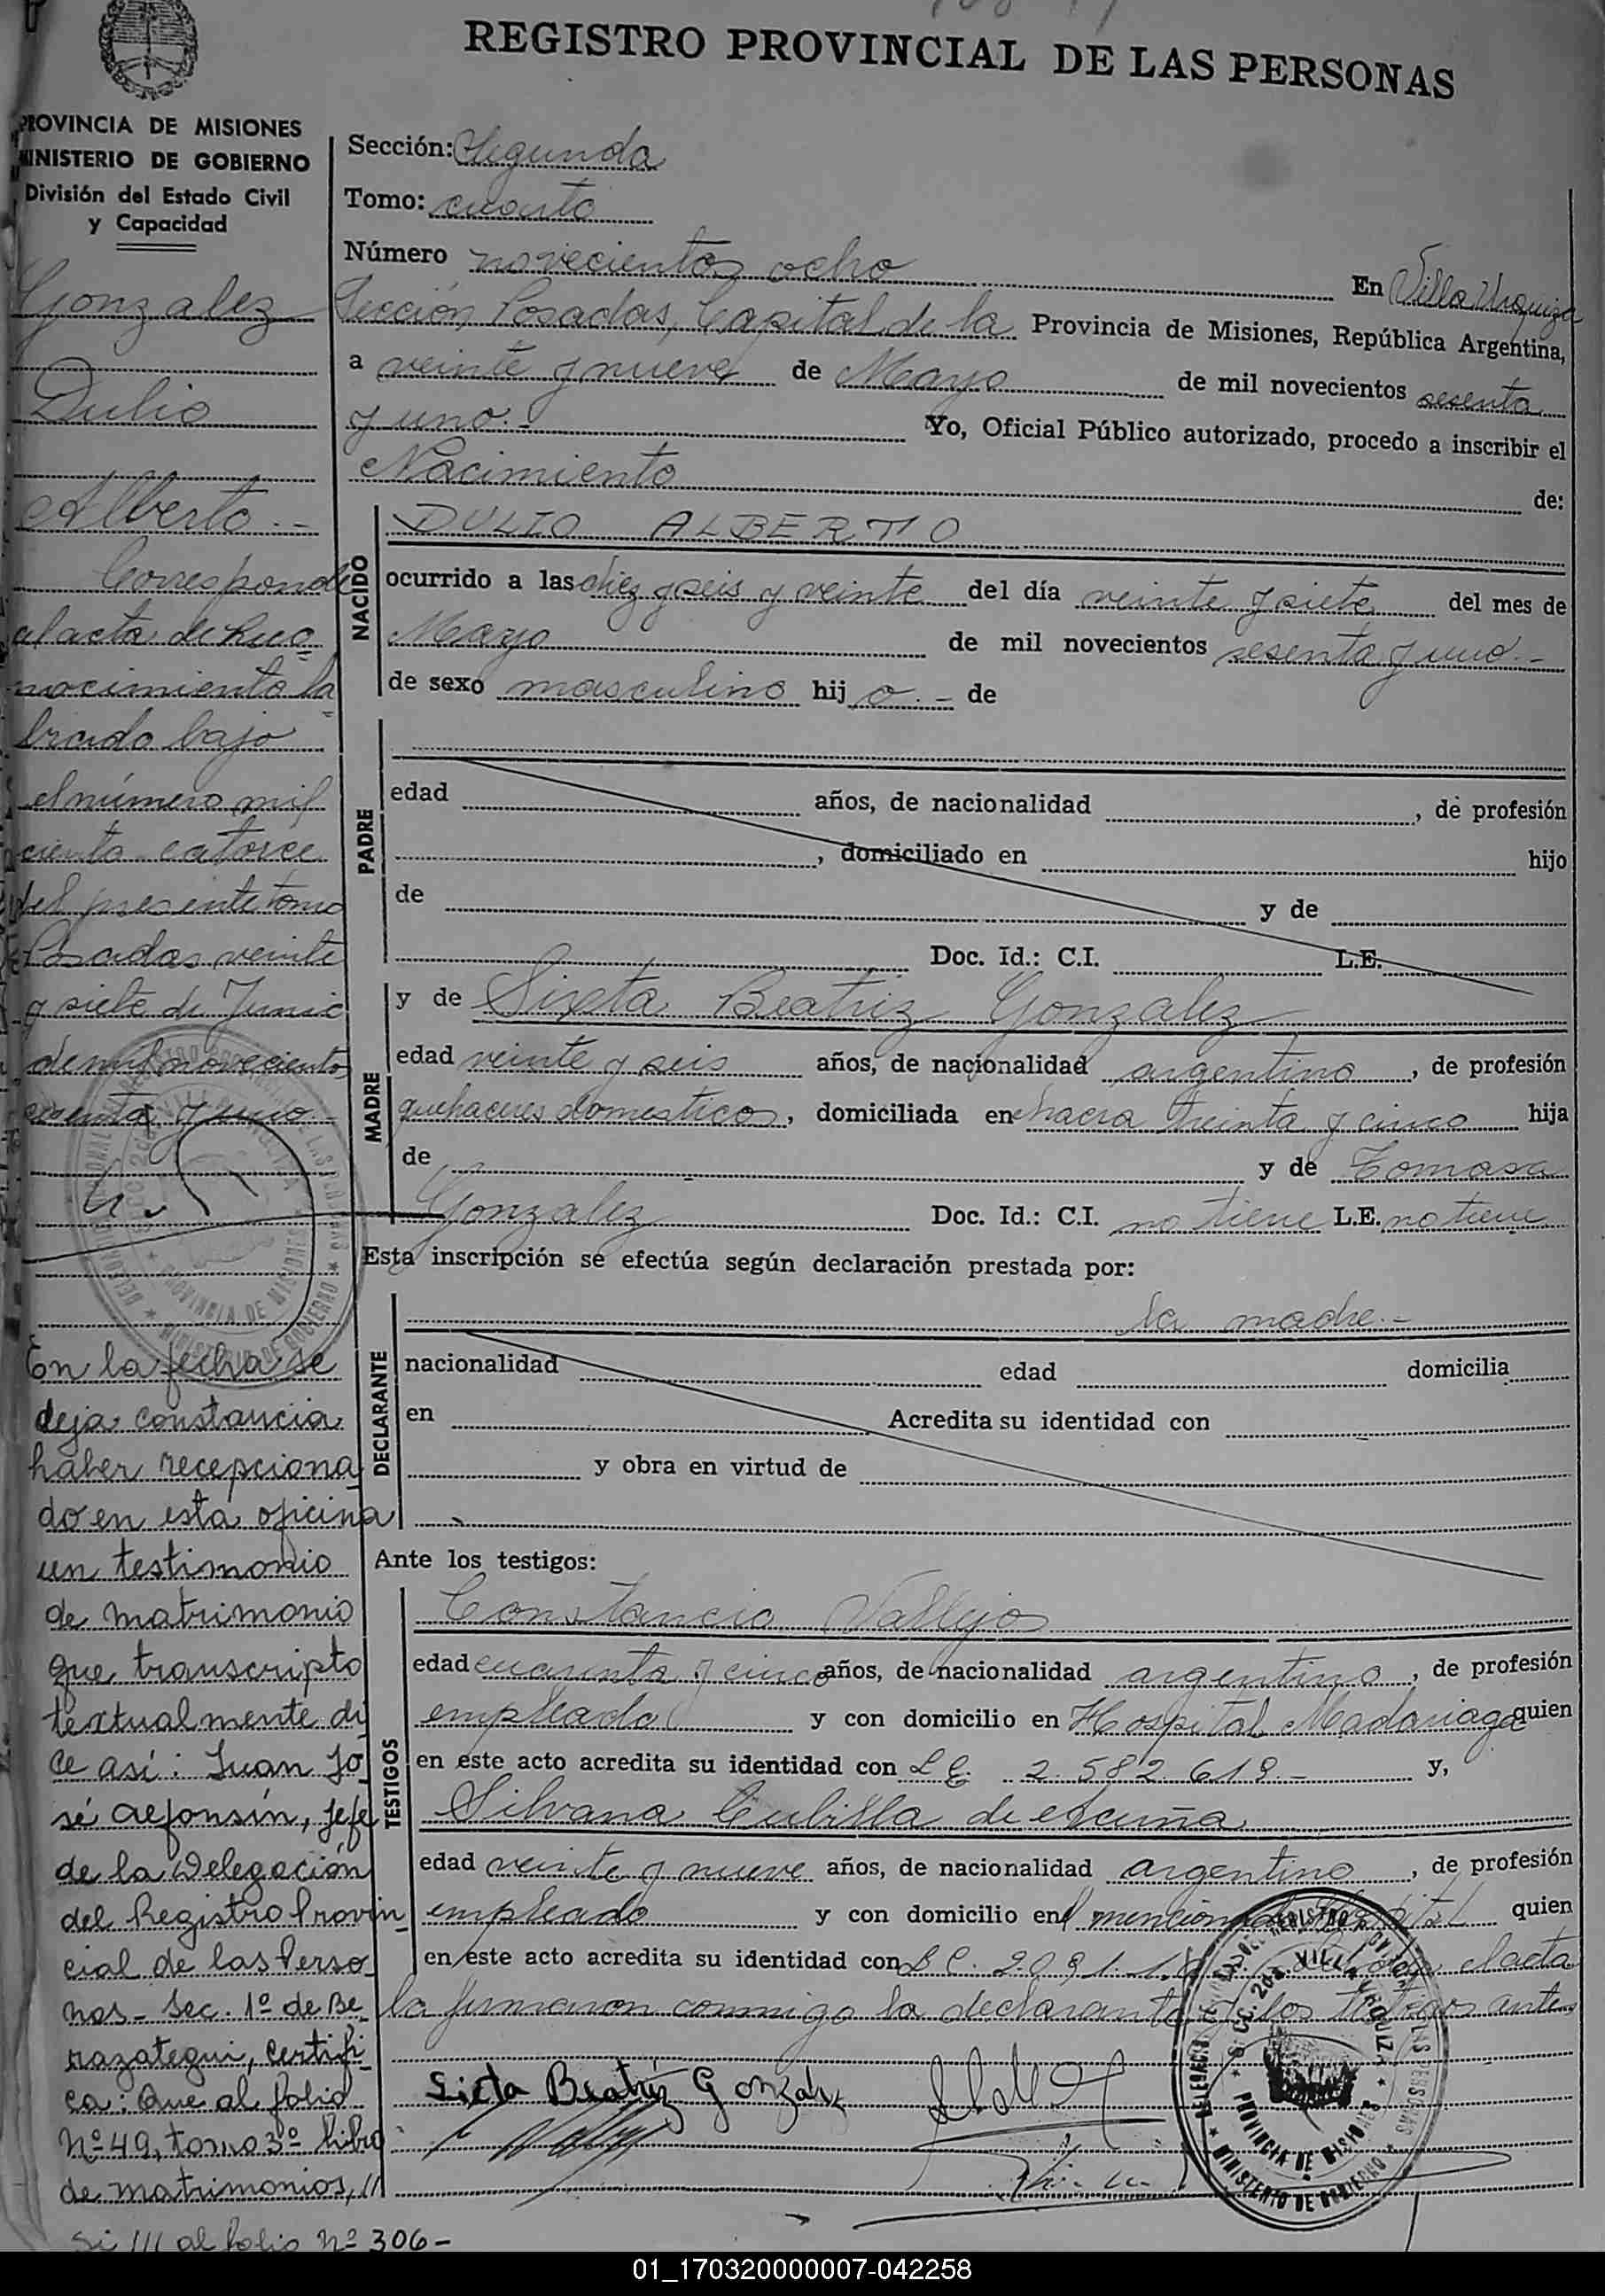 REGISTRO PROVINCIAL DE LAS PERSONAS
PROVINCIA DE MISIONES
MINISTERIO DE GOBIERNO
División del Estado Civil
y Capacidad
Gonzalez
Dulio
Alberto.-
Corresponde
al acta de reco
nocimiento la
brado bajo
el número mil
ciento catorce
del presente tomo
Posadas veinte
y siete de Junio
de mil novecientos
sesenta y uno.-
En la fecha se
deja constancia
haber recepciona
do en esta oficina
un testimonio
de matrimonio
que transcripto
textualmente di
ce así: Juan Jo
sé Alfonsín, Jefe
de la Delegación
del Registro Provin
cial de las Perso
nas- Sec. 1º de Be
razategui, Certifi
ca: Que al folio
Nº 49, tomo 3º libro
de matrimonios, //
Si /// al folio Nº 306-
Sección: Segunda
Tomo: cuarto
Número novecientos ocho En Villa Urquiza
Sección, Posadas, Capital de la Provincia de Misiones, República Argentina,
a veinte y nueve de Mayo de mil novecientos sesenta
y uno.- Yo, Oficial Público autorizado, procedo a inscribir el
Nacimiento de:
NACIDO
DULIO ALBERTO
ocurrido a las diez y seis y veinte del día veinte y siete del mes de
Mayo de mil novecientos sesenta y uno.-
de sexo masculino hijo.- de
PADRE
edad años, de nacionalidad , de profesión
, domiciliado en hijo
de y de
Doc. Id.: C.I. L.E.
MADRE
y de Sixta Beatriz Gonzalez
edad veinte y seis años, de nacionalidad argentina, de profesión
quehaceres domesticos, domiciliada en chacra treinta y cinco hija
de y de Tomasa
Gonzalez Doc. Id.: C.I. no tiene L.E. no tiene
Esta inscripción se efectúa según declaración prestada por:
DECLARANTE
la madre.-
nacionalidad edad domicilia
en Acredita su identidad con
y obra en virtud de
Ante los testigos:
TESTIGOS
Constancio Vallejos
edad cuarenta y cinco años, de nacionalidad argentino, de profesión
empleado y con domicilio en Hospital Madariaga quien
en este acto acredita su identidad con L E. 2.582.618.- y,
Silvana Cubilla de Acuña
edad veinte y nueve años, de nacionalidad argentina, de profesión
empleado y con domicilio en el mencionado Hospital quien
en este acto acredita su identidad con L C. 2.091.1 el acta
la firmaron conmigo la declarante y los testigos ante
Sixta Beatriz Gonzalez
SECC. 2da. VILLA URQUIZA
PROVINCIA DE MISIONES
MINISTERIO DE GOBIERNO
01_170320000007-042258